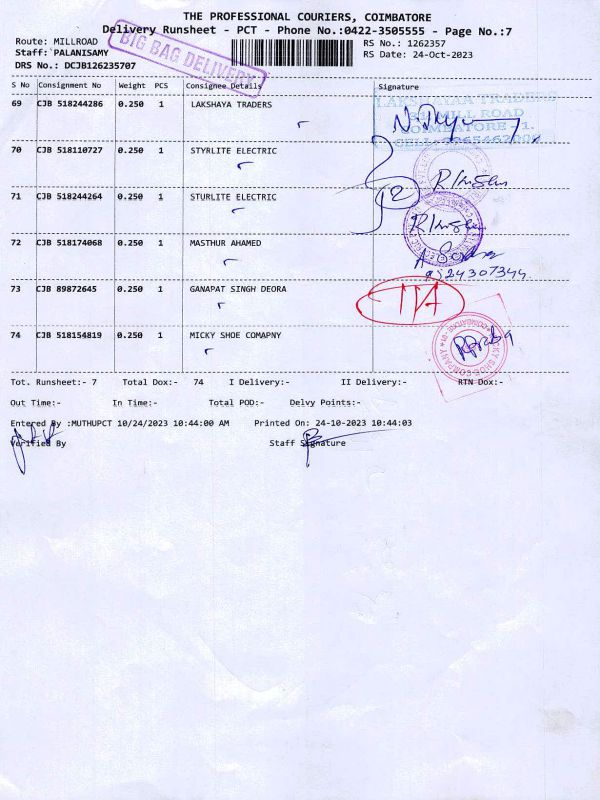 THE PROFESSIONAL COURIERS, COIMBATORE
Delivery Runsheet - PCT - Phone No.:0422-3505555 - Page No.:7
Route: MILLROAD
RS No.: 1262357
Staff: PALANISAMY
RS Date: 24-Oct-2023
DRS No.: DCJB126235707
BIG BAG DELIVERY
S No Consignment No Weight PCS Consignee Details Signature
69 CJB 518244286 0.250 1 LAKSHAYA TRADERS
LAKSHAYAA TRADERS
MILL ROAD
COIMBATORE - 1.
70 CJB 518110727 0.250 1 STYRLITE ELECTRIC
71 CJB 518244264 0.250 1 STURLITE ELECTRIC
2
72 CJB 518174068 0.250 1 MASTHUR AHAMED
9524307344.
73 CJB 89872645 0.250 1 GANAPAT SINGH DEORA
74 CJB 518154819 0.250 1 MICKY SHOE COMAPNY
MICKY SHOE COMPANY
COIMBATORE - 01
Tot. Runsheet:- 7 Total Dox:- 74 I Delivery:- II Delivery:- RTN Dox:-
Out Time:- In Time:- Total POD:- Delvy Points:-
Entered By :MUTHUPCT 10/24/2023 10:44:00 AM Printed On: 24-10-2023 10:44:03
Verified By Staff Signature